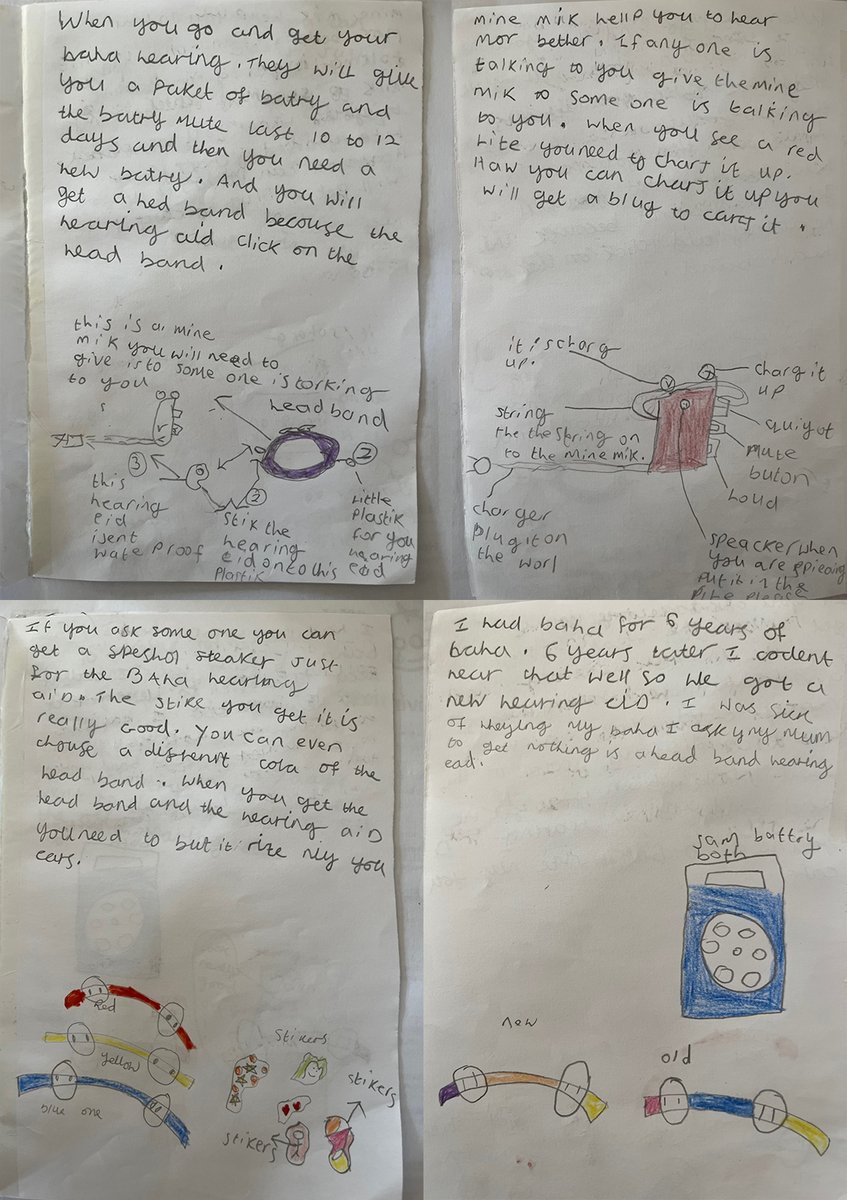 When you go and get your
baha hearing. They will give
you a paket of batry and
the batry mute last 10 to 12
days and then you need a
new batry. And you will
get a hed band becouse the
hearing aid click on the
head band.
this is a mine
mik you will need to
give is to some one is torking
to you
head band
3
2
2
this
hearing
eid
isent
wate proof
Stik the
hearing
eid onto this
plastik
Little
Plastik
for you
hearing
eod
mine mik hellp you to hear
mor better. If any one is
talking to you give the mine
mik to some one is talking
to you. When you see a red
Lite you need to chart it up.
Haw you can chart it up you
will get a blug to cart it.
it is charg
up.
charg it
up
string
the the string on
to the mine mik.
quiyot
mute
buton
Loud
charger
plug it on
the worl
speacker when
you are spieaing
put it in the
If you ask some one you can
get a speshol steaker just
for the BAha hearing
aiD. The stike you get it is
really good. You can even
chouse a disfrent cola of the
head band. When you get the
head band and the hearing aiD
you need to but it rite niy you
ears.
Red
yellow
blue one
Stikers
stikers
stikers
I had baha for 6 years of
baha. 6 years later I codent
hear that well so we got a
new hearing eiD. I was sick
of wheying my baha I ask y my mum
to get nothing is a head band hearing
ead.
sam battry
both
new
old